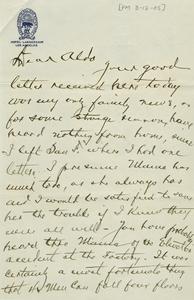 [PM 8-12-05]
HOTEL LANKERSHIM
LOS ANGELES
Dear Aldo
Your good
letter received here today
was my only family news, as
for some strange reason, have
heard nothing from home, since
I left San F. where I had one
letter. I presume Mama has
much too, as she always has
and I would be satisfied to save
her the trouble if I knew they
were all well. You have probably
heard thro Mama of the Elevator
accident at the Factory. It was
certainly a most fortunate thing
that six Men can fall four floors